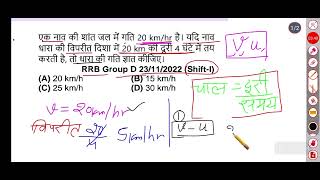 1/2
03:49
एक नाव की शांत जल में गति 20 km/hr है। यदि नाव
धारा की विपरीत दिशा में 20 km की दूरी 4 घंटे में तय
करती है, तो धारा की गति ज्ञात कीजिए।
RRB Group D 23/11/2022 (Shift-I)
(A) 20 km/h (B) 15 km/h
(C) 25 km/h (D) 30 km/h
V u
चाल = दूरी
समय
v = 20 km/hr
विपरीत 20/4 5 km/hr
①
v - u